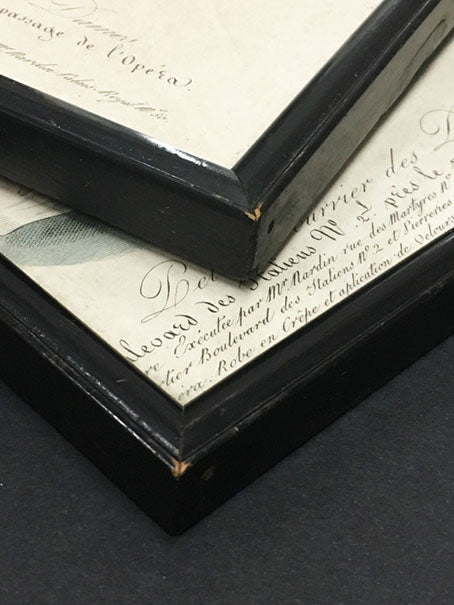 Dames
passage de l'Opéra
Pet Courrier des D
levard des Italiens Nº 2 près le
re Exécutée par Mr Nardin rue des Martyres Nº
tier Boulevard des Italiens Nº 2 et Pierreries
éra. Robe en Crêpe et aplication de Velours